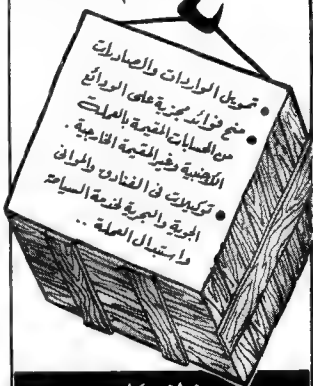 • تمويل الواردات والصادرات
• منح فوائد مجزية على الودائع
من الحسابات المقيمة بالعملات
الأجنبية وغير المقيمة الخارجية .
• توكيلات فى الفنادق والموانى
الجوية والبحرية لخدمة السياحة
واستبدال العملة ..